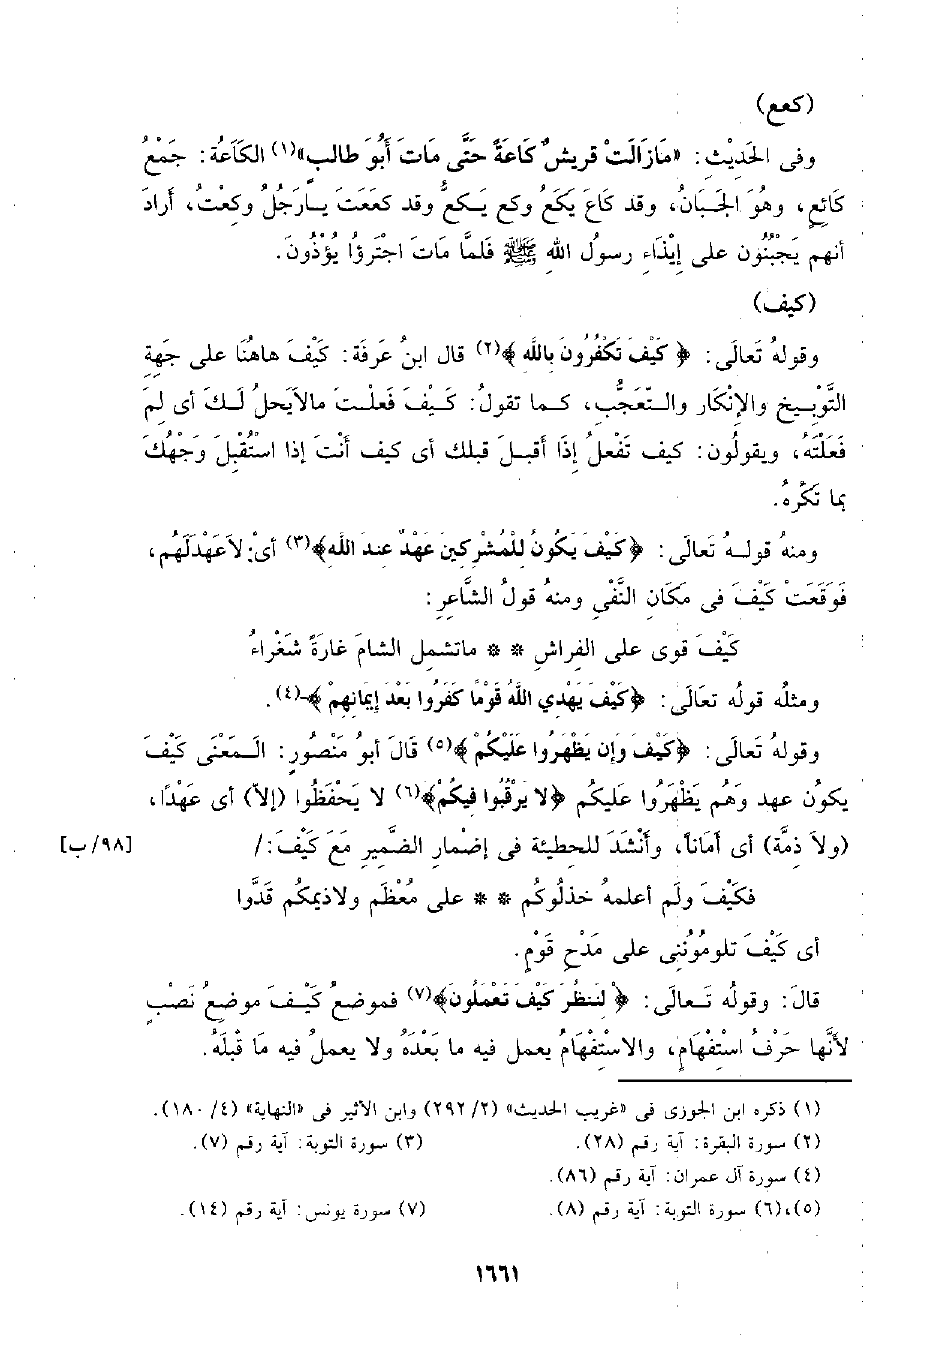 (كعع)
وفى الحَديْث: «مَازَالَتْ قريشٌ كَاعَةً حَتَّى مَاتَ أَبُو طالبٍ»(١) الكَاعَة: جَمْعُ
كَائِعٍ، وهُوَ الجَبانُ، وقد كَاعَ يَكَعُ وكع يَكعُّ وقد كععَت يارَجُلُ وكعتُ، أرادَ
أنهم يَجْبُنُون على إيْذَاءِ رسولُ اللهِ ﷺ فَلمَّا مَاتَ اجْترؤُا يُؤْذُونَ.
(كيف)
وقولهُ تَعالَى: ﴿ كَيْفَ تَكْفُرُونَ بِاللَّهِ ﴾(٢) قال ابنُ عَرفَة: كَيْفَ هاهُنَا على جهةِ
التَّوْبيخِ والإنْكَارِ والتَّعَجُّبِ، كما تقولُ: كَيْفَ فَعلْتَ مالاَيَحلُ لَكَ أى لِمَ
فَعَلْتَهُ، ويقولُون: كيف تَفْعلُ إذَا أقبلَ قبلك أى كيف أنْتَ إذا اسْتُقْبِلَ وَجْهُكَ
بما تَكْرهُ.
ومنهُ قولهُ تَعالَى: ﴿كَيْفَ يَكُونُ لِلْمُشْرِكِينَ عَهْدٌ عِندَ اللَّهِ﴾(٣) أىْ: لاَعَهْدَلَهُم،
فَوَقَعَتْ كَيْفَ فى مَكَانِ النَّفْىِ ومنهُ قولُ الشَّاعرِ:
كَيْفَ قوى على الفراشِ ** ماتشمل الشامَ غارَةً شَعْراءُ
ومثلهُ قولهُ تعَالَى: ﴿كَيْفَ يَهْدِي اللَّهُ قَوْمًا كَفَرُوا بَعْدَ إِيمَانِهِمْ ﴾(٤).
وقولهُ تَعالَى: ﴿كَيْفَ وَإِن يَظْهَرُوا عَلَيْكُمْ ﴾(٥) قَالَ أبوُ مَنْصُورٍ: المَعْنَى كَيْفَ
يكونُ عهد وَهُم يَظْهَرُوا عَليكم ﴿لا يَرْقُبُوا فِيكُمْ﴾(٦) لا يَحْفَظُوا (إلاّ) أى عَهْدًا،
(ولاَ ذمَّة) أى أمَاناً، وأنْشَدَ للحطيئة فى إضْمارِ الضَّميرِ مَعَ كَيْفَ:/ [٩٨/ب]
فكَيْفَ ولَم أعلمهُ خذلُوكُم ** على مُعْظَمٍ ولاذيمكُم قَدَّوا
أى كَيْفَ تلومُونُنى على مَدْحِ قَوْمٍ.
قالَ: وقولُه تَعالَى: ﴿ لِنَنظُرَ كَيْفَ تَعْمَلُونَ﴾(٧) فموضعُ كَيْفَ موضعُ نَصْبٍ
لأنَّها حَرْفُ اسْتفْهامٍ، والاسْتفْهامُ يعمل فيه ما بَعْدَهُ ولا يعملُ فيه مَا قَبْلهُ.
(١) ذكره ابن الجوزى فى «غريب الحديث» (٢/ ٢٩٢) وابن الأثير فى «النهاية» (٤/ ١٨٠).
(٢) سورة البقرة: آية رقم (٢٨). (٣) سورة التوبة: آية رقم (٧).
(٤) سورة آل عمران: آية رقم (٨٦).
(٥)،(٦) سورة التوبة: آية رقم (٨). (٧) سورة يونس: آية رقم (١٤).
١٦٦١